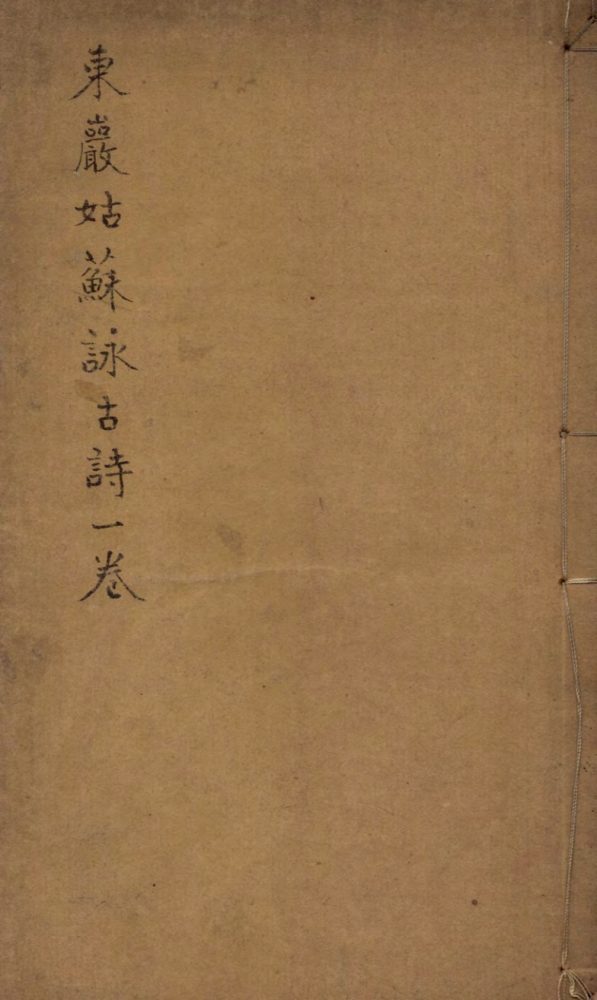 東巖姑蘇詠古詩一卷